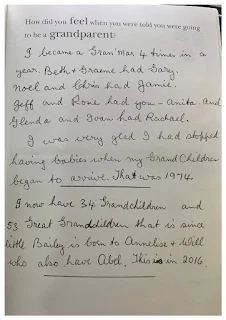 How did you feel when you were told you were going
to be a grandparent?
I became a Gran'Mar 4 times in a
year. Beth & Graeme had Gary.
Noel and Chris had Jamie.
Jeff and Rone had you - Anita. And
Glenda and Ivan had Rachael.
I was very glad I had stopped
having babies when my GrandChildren
began to arrive. That was 1974.
I now have 34 Grandchildren and
53 Great Grandchildren that is since
little Bailey is born to Annelise & Will
who also have Abel. This is in 2016.